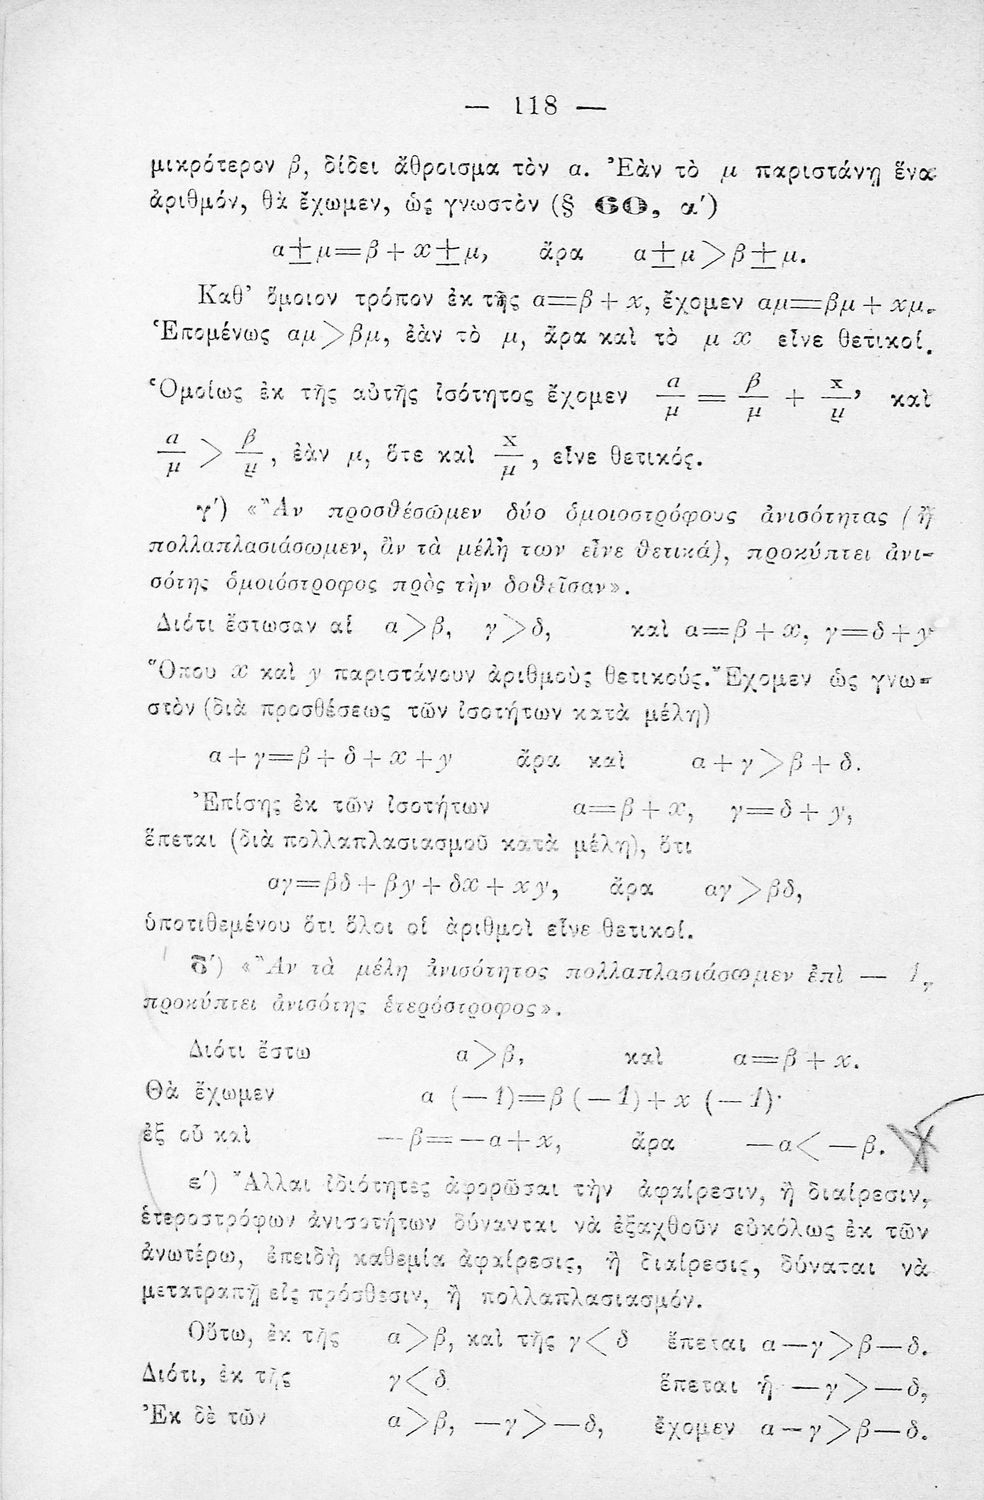 — 118 —
μικρότερον β, δίδει ἄθροισμα τὸν α. Ἐὰν τὸ μ παριστάνῃ ἕνα
ἀριθμόν, θὰ ἔχωμεν, ὡς γνωστὸν (§ 60, α′)
α±μ=β+x±μ, ἄρα α±μ>β±μ.
Καθ' ὅμοιον τρόπον ἐκ τῆς α=β+x, ἔχομεν αμ=βμ+xμ.
Ἑπομένως αμ>βμ, ἐὰν τὸ μ, ἄρα καὶ τὸ μ x εἶνε θετικοί.
Ὁμοίως ἐκ τῆς αὐτῆς ἰσότητος ἔχομεν α/μ = β/μ + x/μ, καὶ
α/μ > β/μ, ἐὰν μ, ὅτε καὶ x/μ, εἶνε θετικός.
γ′) «Ἂν προσθέσωμεν δύο ὁμοιοστρόφους ἀνισότητας (ἢ
πολλαπλασιάσωμεν, ἂν τὰ μέλη των εἶνε θετικά), προκύπτει ἀνι-
σότης ὁμοιόστροφος πρὸς τὴν δοθεῖσαν».
Διότι ἔστωσαν αἱ α>β, γ>δ, καὶ α=β+x, γ=δ+y
Ὅπου x καὶ y παριστάνουν ἀριθμοὺς θετικούς. Ἔχομεν ὡς γνω-
στὸν (διὰ προσθέσεως τῶν ἰσοτήτων κατὰ μέλη)
α+γ=β+δ+x+y ἄρα καὶ α+γ>β+δ.
Ἐπίσης ἐκ τῶν ἰσοτήτων α=β+x, γ=δ+y,
ἕπεται (διὰ πολλαπλασιασμοῦ κατὰ μέλη), ὅτι
αγ=βδ+βy+δx+xy, ἄρα αγ>βδ,
ὑποτιθεμένου ὅτι ὅλοι οἱ ἀριθμοὶ εἶνε θετικοί.
δ′) «Ἂν τὰ μέλη ἀνισότητος πολλαπλασιάσωμεν ἐπὶ — 1,
προκύπτει ἀνισότης ἑτερόστροφος».
Διότι ἔστω α>β, καὶ α=β+x.
Θὰ ἔχωμεν α (—1)=β (—1)+x (—1)·
ἐξ οὗ καὶ —β=—α+x, ἄρα —α<—β.
ε′) Ἄλλαι ἰδιότητες ἀφορῶσαι τὴν ἀφαίρεσιν, ἢ διαίρεσιν,
ἑτεροστρόφων ἀνισοτήτων δύνανται νὰ ἐξαχθοῦν εὐκόλως ἐκ τῶν
ἀνωτέρω, ἐπειδὴ καθεμία ἀφαίρεσις, ἢ διαίρεσις, δύναται νὰ
μετατραπῇ εἰς πρόσθεσιν, ἢ πολλαπλασιασμόν.
Οὕτω, ἐκ τῆς α>β, καὶ τῆς γ<δ ἕπεται α—γ>β—δ.
Διότι, ἐκ τῆς γ<δ ἕπεται ἡ —γ>—δ,
Ἐκ δὲ τῶν α>β, —γ>—δ, ἔχομεν α—γ>β—δ.